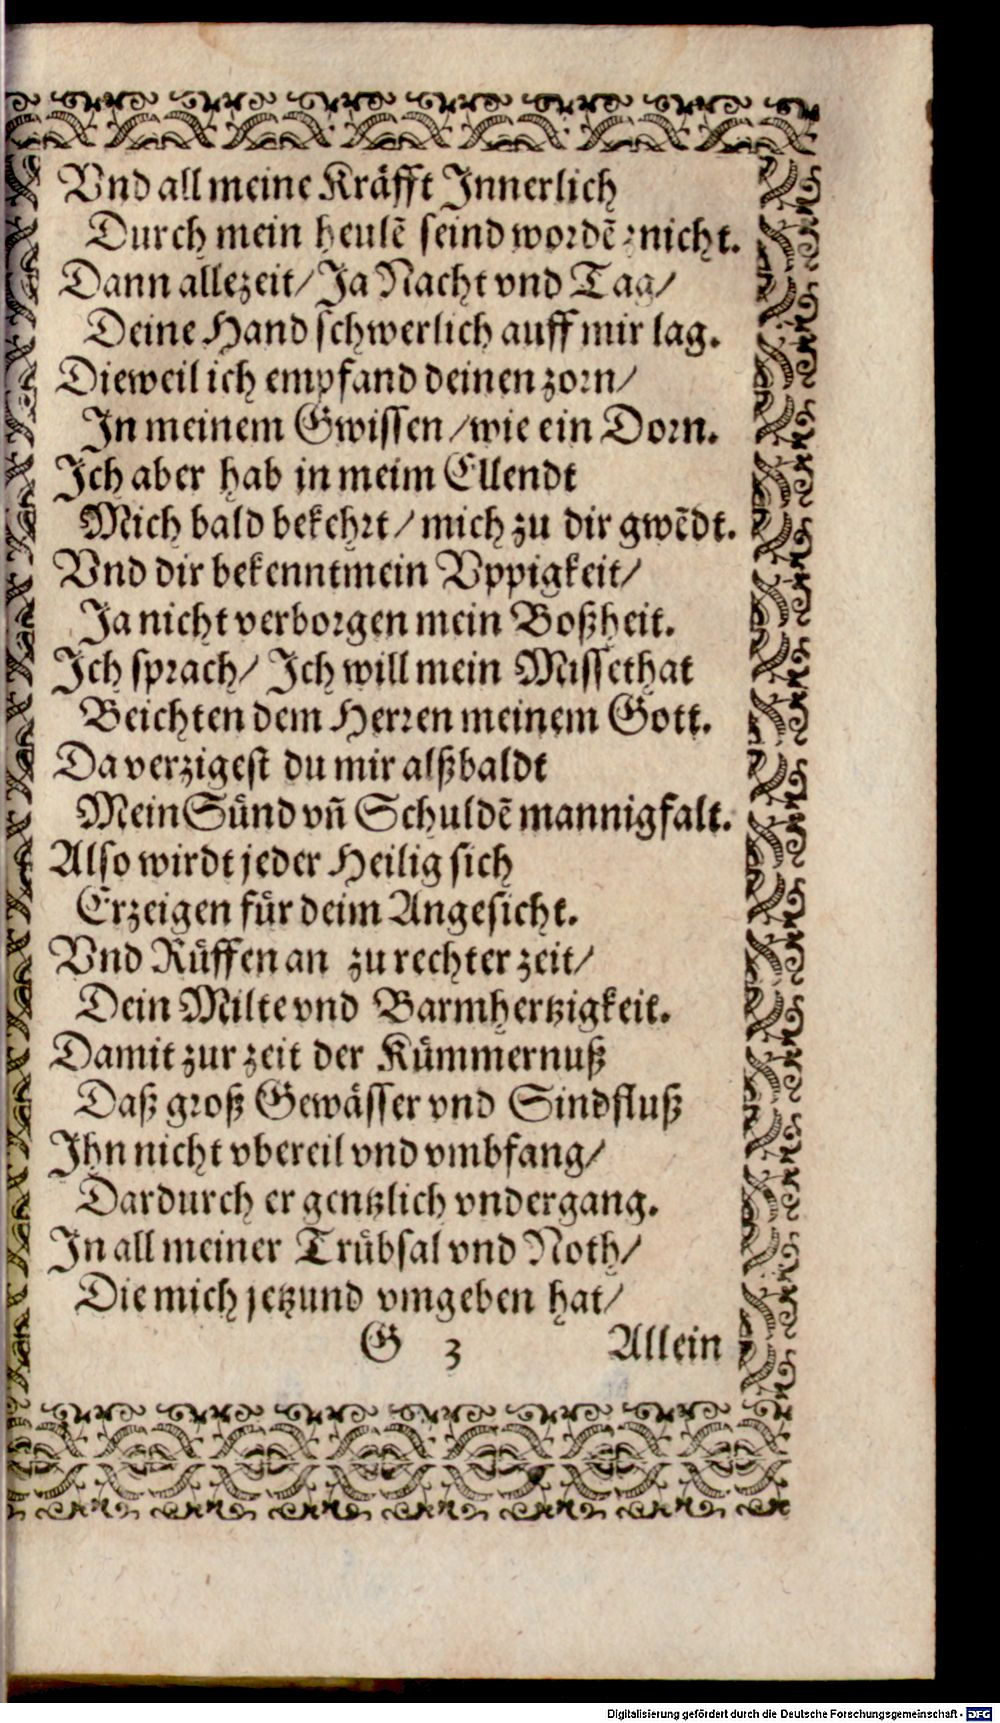 Vnd all meine Kräfft Innerlich
Durch mein heulẽ seind wordẽ znicht.
Dann allezeit/ Ja Nacht vnd Tag/
Deine Hand schwerlich auff mir lag.
Dieweil ich empfand deinen zorn/
In meinem Gwissen/wie ein Dorn.
Ich aber hab in meim Ellendt
Mich bald bekehrt/ mich zu dir gwẽdt.
Vnd dir bekennt mein Vppigkeit/
Ja nicht verborgen mein Boßheit.
Ich sprach/ Ich will mein Missethat
Beichten dem Herren meinem Gott.
Da verzigest du mir alßbaldt
Mein Sünd vñ Schuldẽ mannigfalt.
Also wirdt jeder Heilig sich
Erzeigen für deim Angesicht.
Vnd Rüffen an zu rechter zeit/
Dein Milte vnd Barmhertzigkeit.
Damit zur zeit der Kümmernuß
Daß groß Gewässer vnd Sindfluß
Ihn nicht vbereil vnd vmbfang/
Dardurch er gentzlich vndergang.
In all meiner Trübsal vnd Noth/
Die mich jetzund vmgeben hat/
G 3 Allein
Digitalisierung gefördert durch die Deutsche Forschungsgemeinschaft - DFG